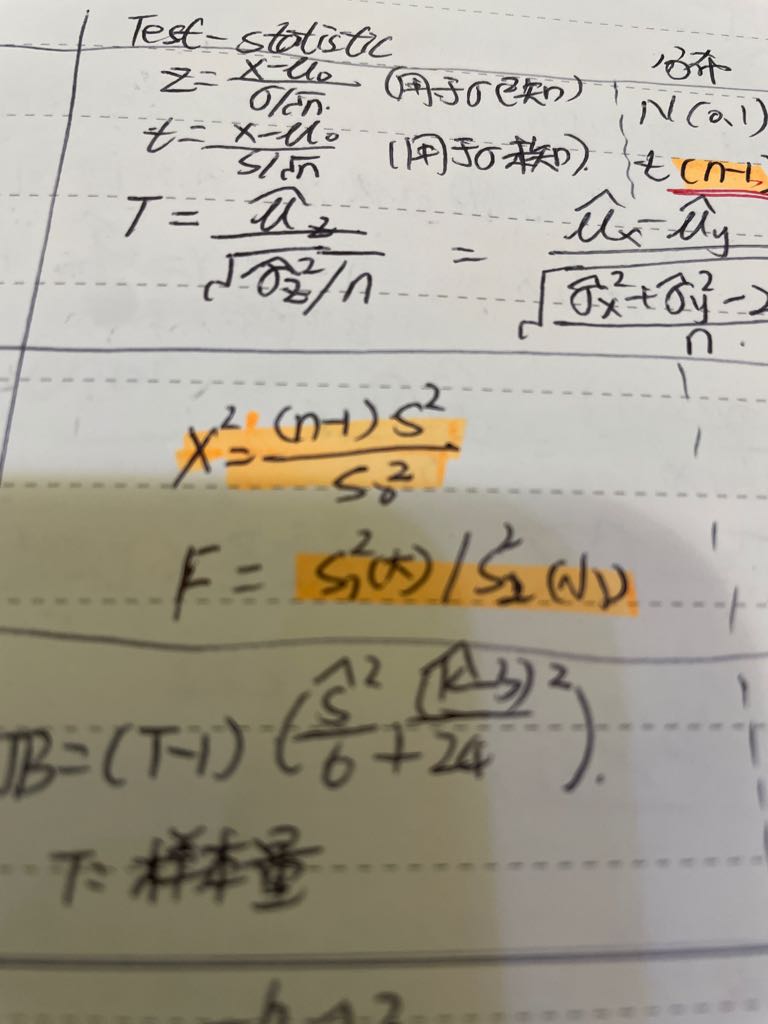 Test-statistic 分布
z = (x-μ₀)/(σ/√n) (用于σ已知) N(0,1)
t = (x-μ₀)/(s/√n) (用于σ未知) t(n-1)
T = μ̂_z/√(σ̂_z²/n) = (μ̂_x-μ̂_y)/√((σ̂_x²+σ̂_y²-2)/n)
X² = (n-1)S²/S₀²
F = S₁²(大)/S₂²(小)
JB=(T-1)(Ŝ²/6+(K̂-3)²/24).
T=样本量